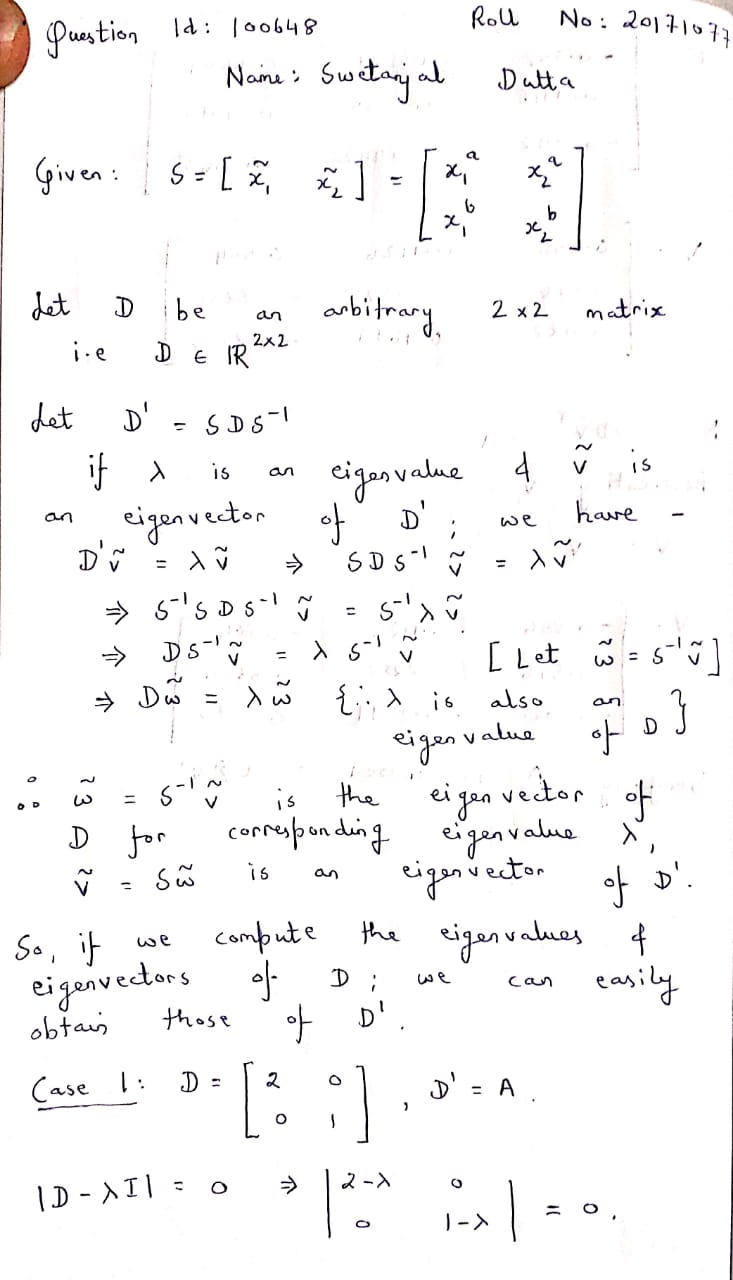 Question Id: 100648 Roll No: 20171077
Name: Swetanjal Dutta
Given: S = [ x̃₁ x̃₂ ] = [ x₁ᵃ x₂ᵃ
x₁ᵇ x₂ᵇ ].
Let D be an arbitrary, 2x2 matrix
i.e D ∈ ℝ²ˣ²
Let D' = SDS⁻¹
if λ is an eigenvalue & ṽ is
an eigenvector of D' ; we have -
D'ṽ = λṽ ⇒ SDS⁻¹ ṽ = λṽ
⇒ S⁻¹SDS⁻¹ ṽ = S⁻¹λṽ
⇒ DS⁻¹ṽ = λ S⁻¹ ṽ [ Let ω̃ = S⁻¹ṽ ]
⇒ Dω̃ = λω̃ {∴ λ is also an
eigenvalue of D }
∴ ω̃ = S⁻¹ṽ is the eigenvector of
D for corresponding eigenvalue λ,
ṽ = Sω̃ is an eigenvector of D'.
So, if we compute the eigenvalues &
eigenvectors of D ; we can easily
obtain those of D'.
Case 1: D = [ 2 0
0 1 ] , D' = A.
|D - λI| = 0 ⇒ | 2-λ 0
0 1-λ | = 0.